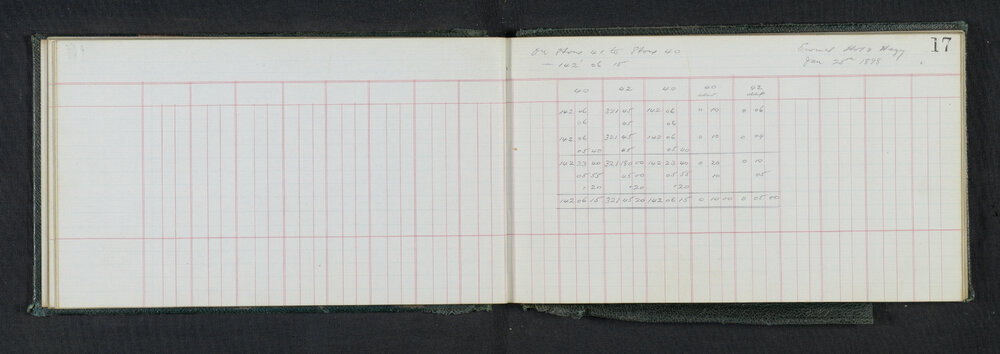 17
On Stone 41 to Stone 40
Jan 25th 1898
- 142° 06 15
40 42 40 40 42
142 06 321 45 142 06 0 10 0 06
06 45 06
142 06 321 45 142 06 0 10 0 04
05 40 45 05 40
142 23 40 321 180 00 142 23 40 0 20 0 10
05 55 45 00 05 55 10 05
+20 +20 +20
142 06 15 321 45 20 142 06 15 0 10 00 0 05 00